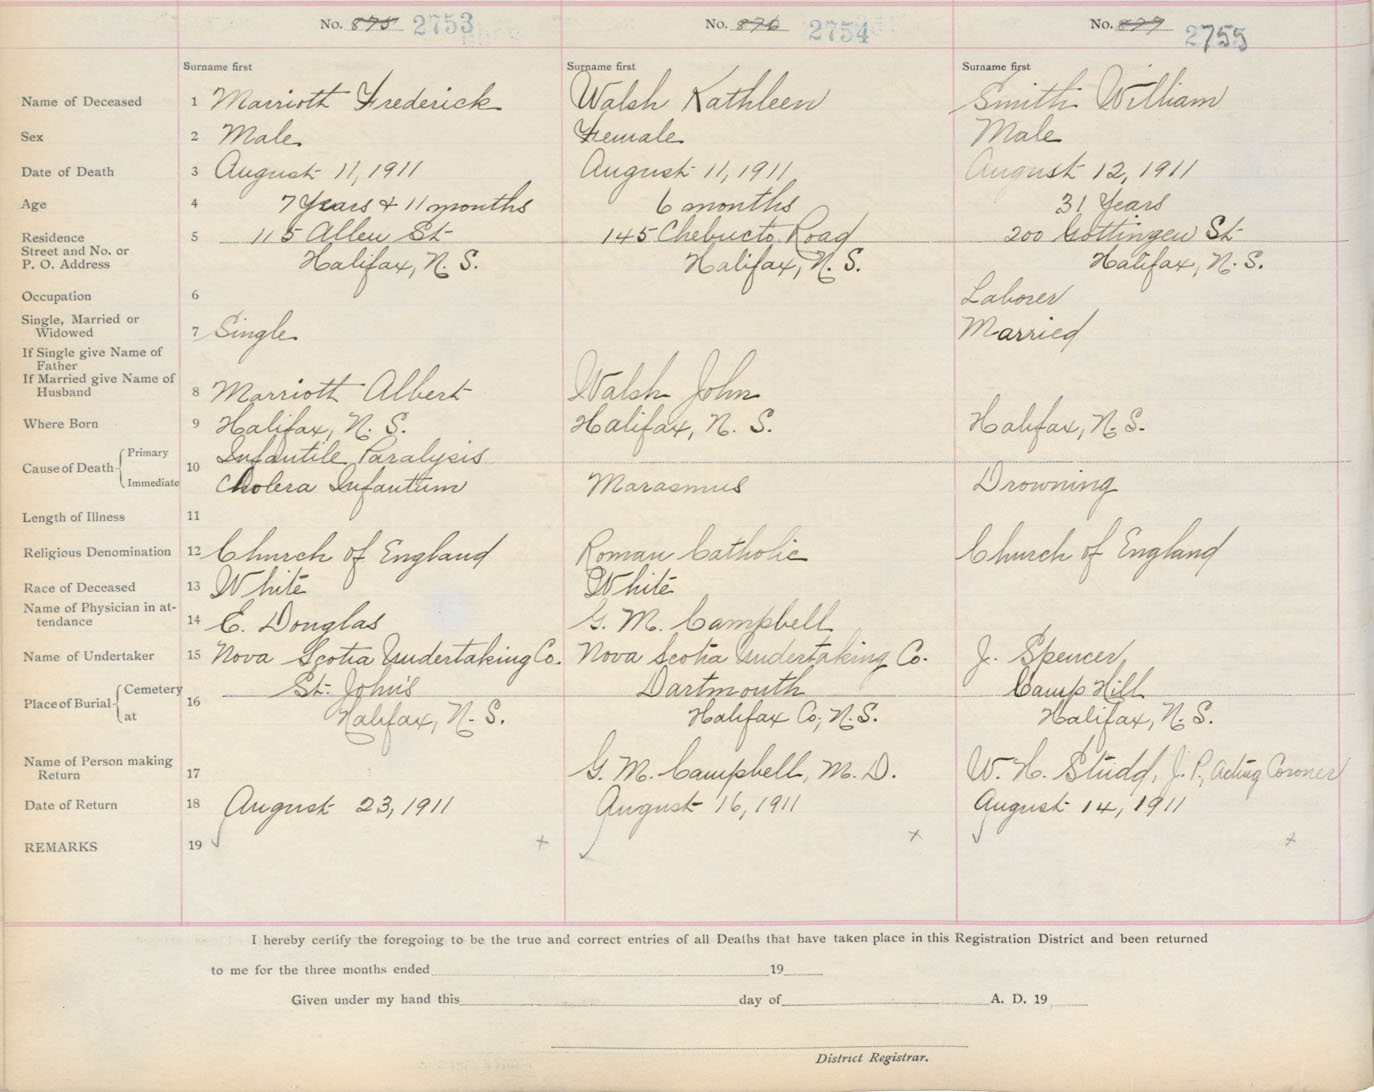 No. 875 2753 No. 876 2754 No. 877 2755
Surname first Surname first Surname first
Name of Deceased 1 Marriott Frederick Walsh Kathleen Smith William
Sex 2 Male Female Male
Date of Death 3 August 11, 1911 August 11, 1911 August 12, 1911
Age 4 7 Years & 11 months 6 months 31 Years
Residence 5 115 Allen St 145 Chebucto Road 200 Gottingen St
Street and No. or
P. O. Address Halifax, N. S. Halifax, N. S. Halifax, N. S.
Occupation 6 Laborer
Single, Married or
Widowed 7 Single Married
If Single give Name of
Father
If Married give Name of
Husband 8 Marriott Albert Walsh John
Where Born 9 Halifax, N. S. Halifax, N. S. Halifax, N. S.
Primary Infantile Paralysis
Cause of Death 10
Immediate Cholera Infantum Marasmus Drowning
Length of Illness 11
Religious Denomination 12 Church of England Roman Catholic Church of England
Race of Deceased 13 White White
Name of Physician in at-
tendance 14 E. Douglas G. M. Campbell
Name of Undertaker 15 Nova Scotia Undertaking Co. Nova Scotia Undertaking Co. J. Spencer
Cemetery St. John's Dartmouth Camp Hill
Place of Burial 16
at Halifax, N. S. Halifax Co, N. S. Halifax, N. S.
Name of Person making
Return 17 G. M. Campbell, M. D. W. H. Studd, J. P., Acting Coroner
Date of Return 18 August 23, 1911 August 16, 1911 August 14, 1911
REMARKS 19
I hereby certify the foregoing to be the true and correct entries of all Deaths that have taken place in this Registration District and been returned
to me for the three months ended 19
Given under my hand this day of A. D. 19
District Registrar.